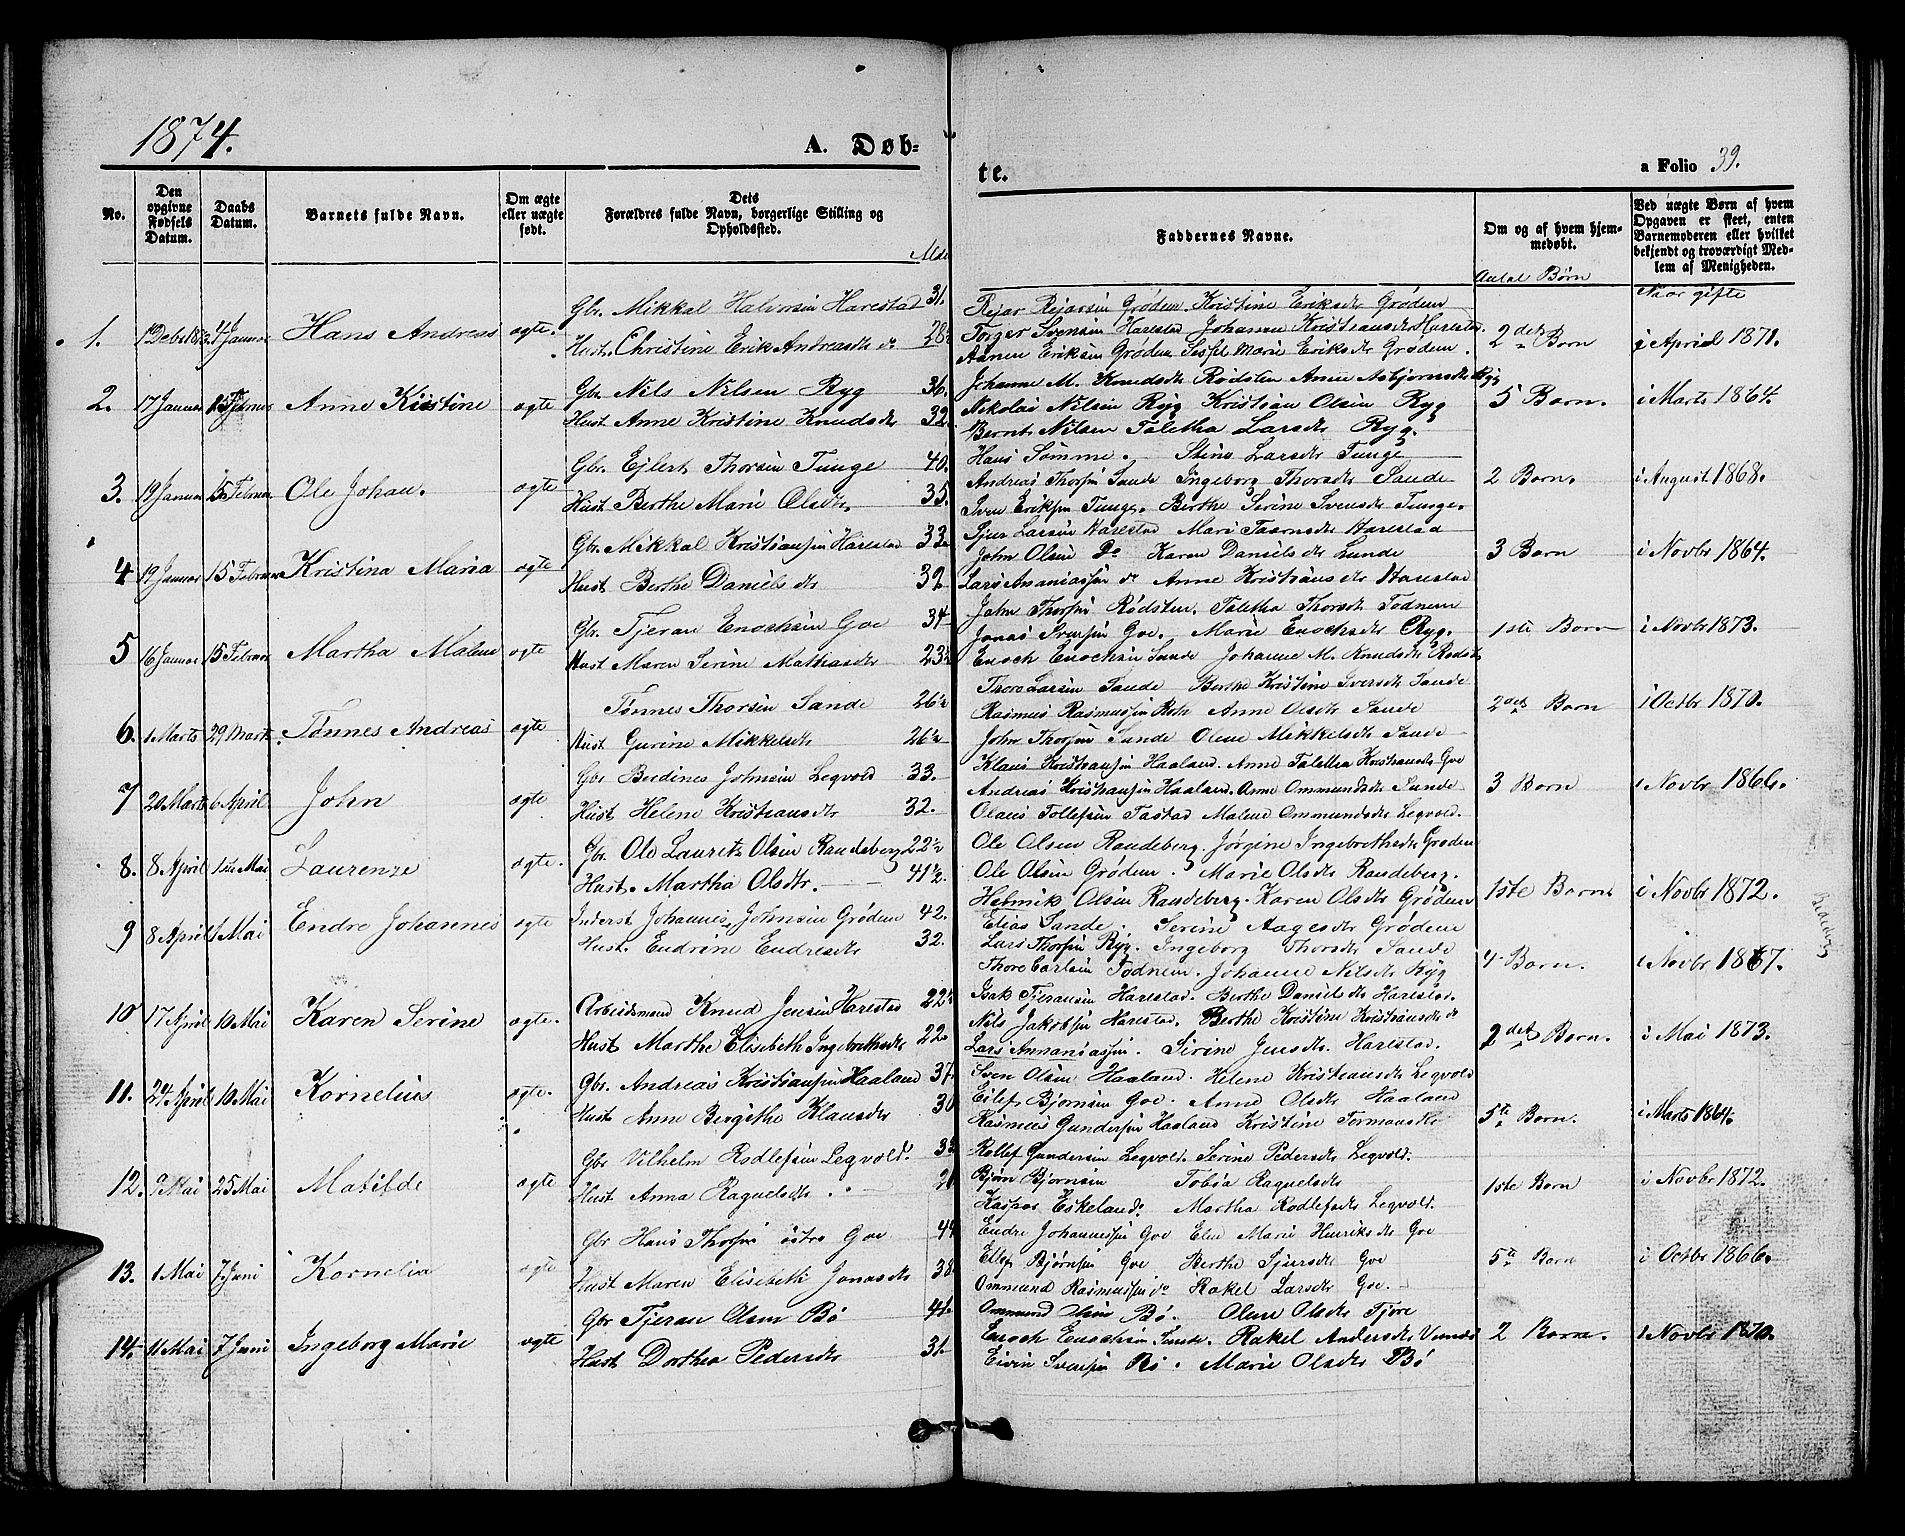 1874.
A. Døb-
te.
a Folio 39.
No.
Den opgivne Fødsels Datum.
Daabs Datum.
Barnets fulde Navn.
Om ægte eller uægte født.
Dets Forældres fulde Navn, borgerlige Stilling og Opholdssted.
Faddernes Navne.
Om og af hvem hjemmedøbt.
Antal Børn
Ved uægte Børn af hvem Opgaven er skeet, enten Barnemoderen eller hvilket bekjendt og troværdigt Medlem af Menigheden.
Naar gifte
1. 4 Januar Hans Andreas ægte.
Gbr. Mikkal Halvorsen Harestad 31.
Hust. Christine Erik Andreasdtr do 28
Rejar Rejarsen Grødem. Kristine Eriksdtr Grødem
Torger Svensen Harestad Johanne Kristiansdtr Harestad.
Asmen Eriksen Grødem Sissel Marie Eriksdtr Grødem.
2det Barn
i April 1871.
2. 17 Januar 15 Febr Anne Kristine ægte
Gbr. Nils Nilsen Ryg 36.
Hust Anne Kristine Knudsdtr 32
Johanne M. Knudsdtr Rødsten Anne Asbjørnsdtr Ryg
Nikolai Nilsen Ryg Kristian Olsen Ryg
Bernt Nilsen Taletha Larsdtr Ryg.
5 Barn.
i Marts 1864.
3. 19 Januar 15 Februar Ole Johan. ægte
Gbr. Ejlert Thorsen Tunge 40.
Hust Berthe Marie Olsdtr. 35.
Hans Sømme. Stine Larsdtr Tunge
Andreas Thorsen Sande Ingeborg Thorsdtr Sande
Sven Eriksen Tunge. Berthe Serine Svensdtr Tunge.
2 Barn.
i August 1868.
4 19 Januar 15 Februar Kristina Maria ægte
Gbr. Mikkal Kristiansen Harestad 33
Hust Berthe Daniels dtr 32
Sjur Larsen Harestad Mari Harestad
John Olsen Do Karen Daniels dtr Sunde
Lars Ananiassen do Anne Kristians dtr Harestad
3 Barn
i Novbr 1864.
5 16 Januar 15 Februar Martha Malene ægte
Gbr. Tjeran Enochsen Goe 34
Hust Maren Serine Mathiasdtr 23½
John Thorsen Rødsten. Taletha Thorsdtr Todnem
Jonas Svensen Goe. Marie Enochsdtr Ryg.
Enoch Enochsen Sande Johanne M. Knudsdtr Rødst
1ste Barn
i Novbr 1873.
6. 1 Marts 29 Marts. Tønnes Andreas ægte
Tønnes Thorsen Sande 26½
Hust Gurine Mikkelsdtr 26½
Thore Larsen Sande Berthe Kristine Iversdtr Sande
Rasmus Rasmussen Anne Olsdtr Sande
John Thorsen Sande Olene Mikkelsdtr Sande
2det Barn
i Octbr 1870.
7 20 Marts 6 April John ægte
Gbr Berdines Johnsen Legvold 33.
Hust Helene Kristiansdtr 32.
Klaus Kristiansen Haaland. Anne Taletha Kristiansdtr Goe
Andreas Kristiansen Haaland. Anne Ommundsdtr Sunde
Olaus Tollefsen Tastad Malene Ommundsdtr Legvold.
3 Barn
i Novbr 1866.
8. 8 April 1ste Mai Laurenze ægte.
Gbr. Ole Lauritz Olsen Randeberg 22½
Hust. Martha Olsdtr. 41½.
Ole Olsen Randeberg. Jørgine Ingebrethsdtr Grødem
Ole Olsen Grødem. Marie Olsdtr Randeberg.
Helmik Olsen Randeberg. Karen Olsdtr Grødem
1ste Barn
i Novbr 1872.
9 8 April 1 Mai Endre Johannes ægte
Inderst Johannes Johnsen Grødem 42.
Hust. Endrine Endresdtr 32.
Elias Sande. Serine Aagesdtr Grødem
Lars Thorsen Ryg. Ingeborg Thorsdtr Sande
Thore Carlsen Todnem. Johanne Nilsdtr Ryg
4 Barn.
i Novbr 1867.
10 17 April 10 Mai Karen Serine ægte.
Arbeidsmand Knud Jensen Harestad 22½
Hust Marthe Elisebeth Ingebrethsdtr 22
Isak Tjeransen Harestad. Berthe Daniels dtr Harestad.
Nils Jakobsen Harestad. Berthe Kristine Kristiansdtr do
Lars Annaniassen. Serine Jensdtr. Harestad.
2det Barn.
i Mai 1873.
11. 24 April 10 Mai Kornelius ægte.
Gbr. Andreas Kristiansen Haaland 37
Hust Anne Bergithe Klausdtr 30
Sven Olsen Haaland. Helene Kristiansdtr Legvold
Eilef Bjørnsen Goe. Anne Olsdtr Haaland
Rasmus Gundersen Haaland Kristine Tormansdtr
5te Barn.
i Marts 1864.
12. 9 Mai 25 Mai Matilde ægte
Gbr Vilhelm Rodlefsen Legvold. 33
Hust Anna Raguelsdtr
Rollef Gundersen Legvold. Serine Pedersdtr Legvold.
Bjørn Bjørnsen Tobia Raguelsdtr
Kasper Eskeland. Martha Rodlefsdtr Legvold.
1ste Barn
i Novbr 1872.
13. 1 Mai 7 Juni Kornelia ægte
Gbr Hans Thorsen østre Goe 44
Hust Maren Elisebeth Jonasdtr 38.
Endre Johannessen Goe Elen Marie Henriksdtr Goe
Ellef Bjørnsen Goe Berthe Sjursdtr Goe
Ommund Rasmussen do Rakel Larsdtr Goe.
5te Barn
i Octbr 1866.
14. 11 Mai 7 Juni Ingeborg Marie ægte
Gbr Tjeran Olsen Bø 46
Hust Dorthea Pedersdtr 31.
Ommund Olsen Bø. Olene Olsdtr Tjøre
Enoch Enochsen Sande. Rakel Andersdtr
Eivin Svensen Bø. Marie Olsdtr Bø
2 Barn.
i Novbr 1870.